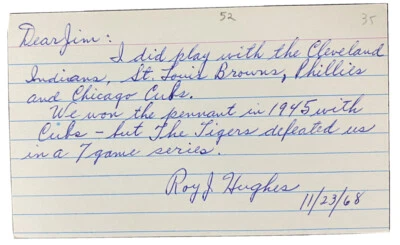 52
35
Dear Jim:
I did play with the Cleveland
Indians, St. Louis Browns, Phillies
and Chicago Cubs.
We won the pennant in 1945 with
Cubs - but The Tigers defeated us
in a 7 game series.
Roy J. Hughes
11/23/68